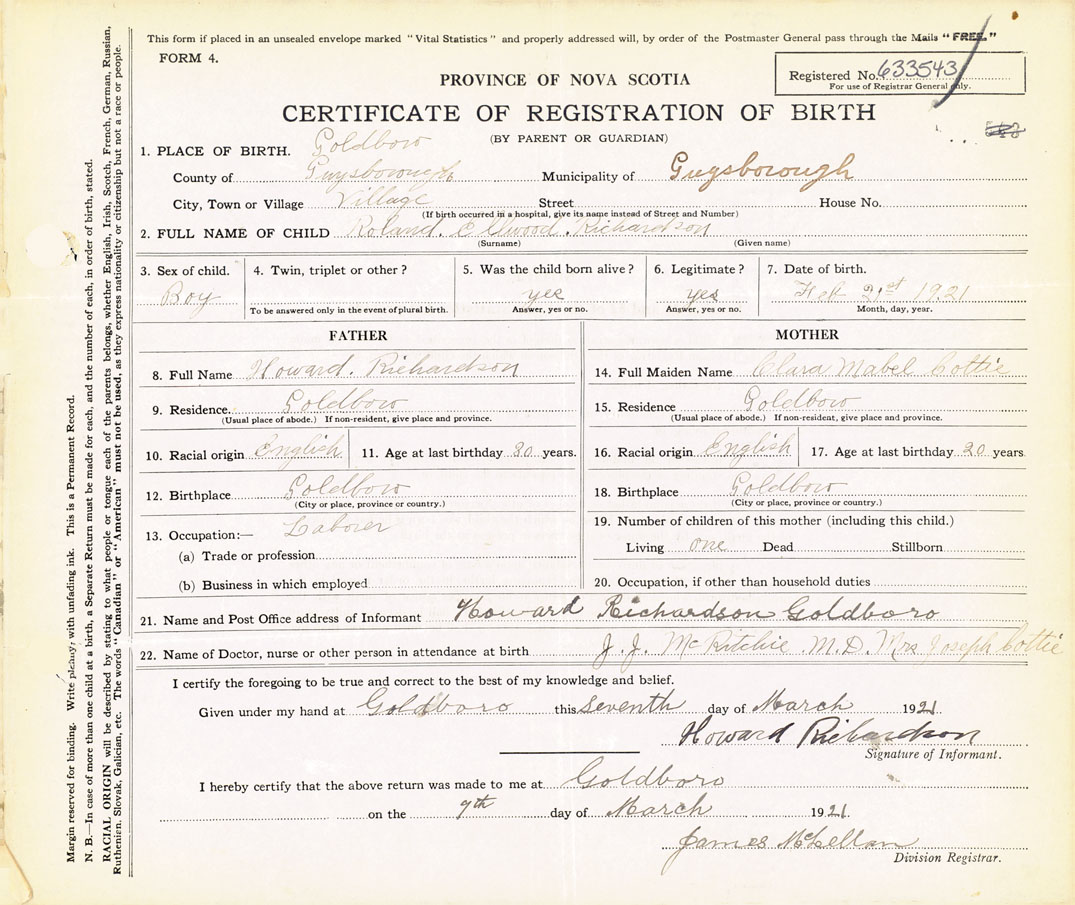 This form if placed in an unsealed envelope marked "Vital Statistics" and properly addressed will, by order of the Postmaster General pass through the Mails "FREE."
FORM 4.
Registered No. 633543
For use of Registrar General only.
PROVINCE OF NOVA SCOTIA
CERTIFICATE OF REGISTRATION OF BIRTH
(BY PARENT OR GUARDIAN)
1. PLACE OF BIRTH. Goldboro
County of Guysborough Municipality of Guysborough
City, Town or Village Village Street House No.
(If birth occurred in a hospital, give its name instead of Street and Number)
2. FULL NAME OF CHILD Roland. Ellwood. Richardson
(Surname) (Given name)
3. Sex of child. 4. Twin, triplet or other? 5. Was the child born alive? 6. Legitimate? 7. Date of birth.
Boy yes yes Feb 21st 1921
To be answered only in the event of plural birth. Answer, yes or no. Answer, yes or no. Month, day, year.
FATHER MOTHER
8. Full Name Howard. Richardson 14. Full Maiden Name Clara Mabel Cottie
9. Residence. Goldboro 15. Residence Goldboro
(Usual place of abode.) If non-resident, give place and province. (Usual place of abode.) If non-resident, give place and province.
10. Racial origin English 11. Age at last birthday 30 years. 16. Racial origin English 17. Age at last birthday 20 years
12. Birthplace Goldboro 18. Birthplace Goldboro
(City or place, province or country.) (City or place, province or country.)
13. Occupation:— Laborer 19. Number of children of this mother (including this child.)
(a) Trade or profession Living one Dead Stillborn
(b) Business in which employed 20. Occupation, if other than household duties
21. Name and Post Office address of Informant Howard Richardson Goldboro
22. Name of Doctor, nurse or other person in attendance at birth J. J. McRitchie M.D. Mrs Joseph Cottie
I certify the foregoing to be true and correct to the best of my knowledge and belief.
Given under my hand at Goldboro this Seventh day of March 1921
Howard Richardson
Signature of Informant.
I hereby certify that the above return was made to me at Goldboro
on the 7th day of March 1921.
James McLellan
Division Registrar.
Margin reserved for binding. Write plainly, with unfading ink. This is a Permanent Record.
N. B.—In case of more than one child at a birth, a Separate Return must be made for each, and the number of each, in order of birth, stated.
RACIAL ORIGIN will be described by stating to what people or tongue each of the parents belongs, whether English, Irish, Scotch, French, German, Russian,
Ruthenien, Slovak, Galician, etc. The words "Canadian" or "American" must not be used, as they express nationality or citizenship but not a race or people.